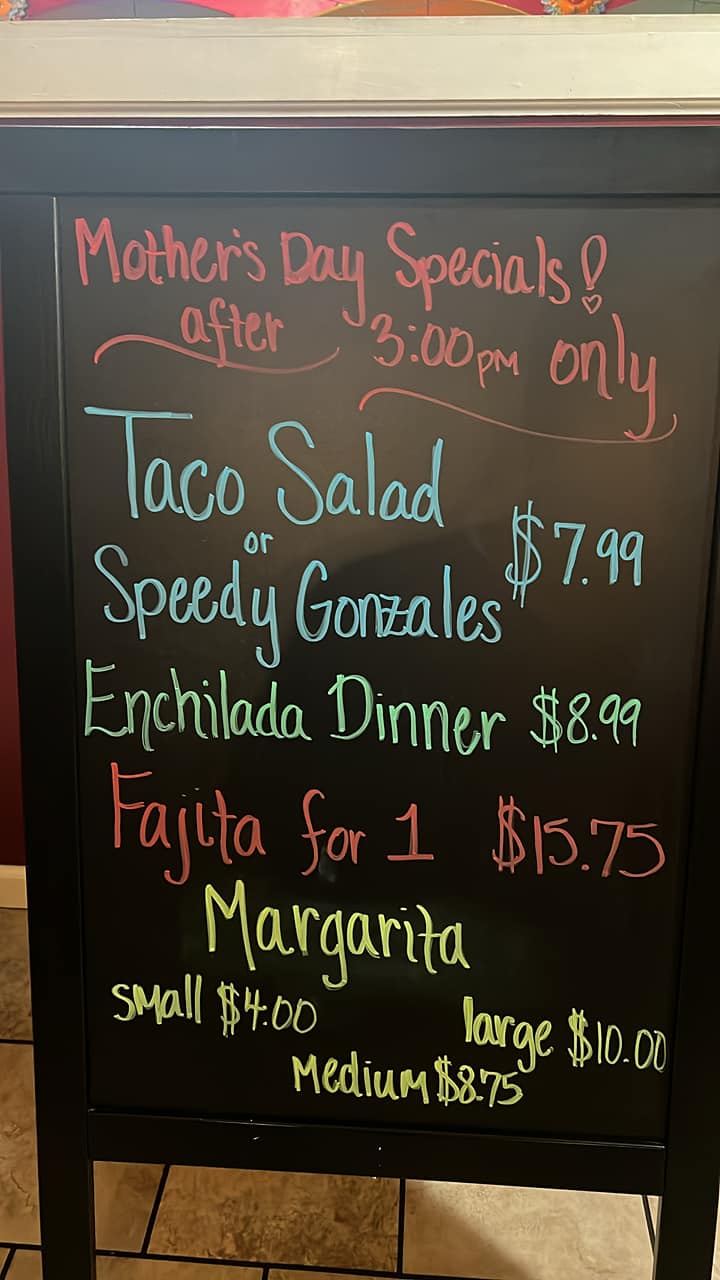 Mother's Day Specials!
after 3:00pm only
Taco Salad
or
$7.99
Speedy Gonzales
Enchilada Dinner $8.99
Fajita for 1 $15.75
Margarita
small $4.00
large $10.00
Medium $8.75